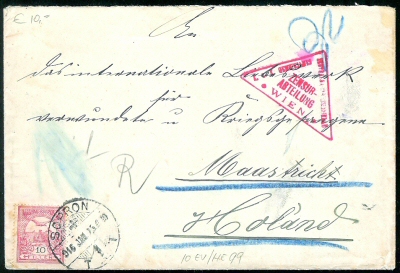 € 10,-
An
das internationale Liebeswerk
für
verwundete u Kriegsgefangene
R
Maastricht
Holand
ZENSUR-
ABTEILUNG
WIEN
SOPRON
10
10 EV/HE 99